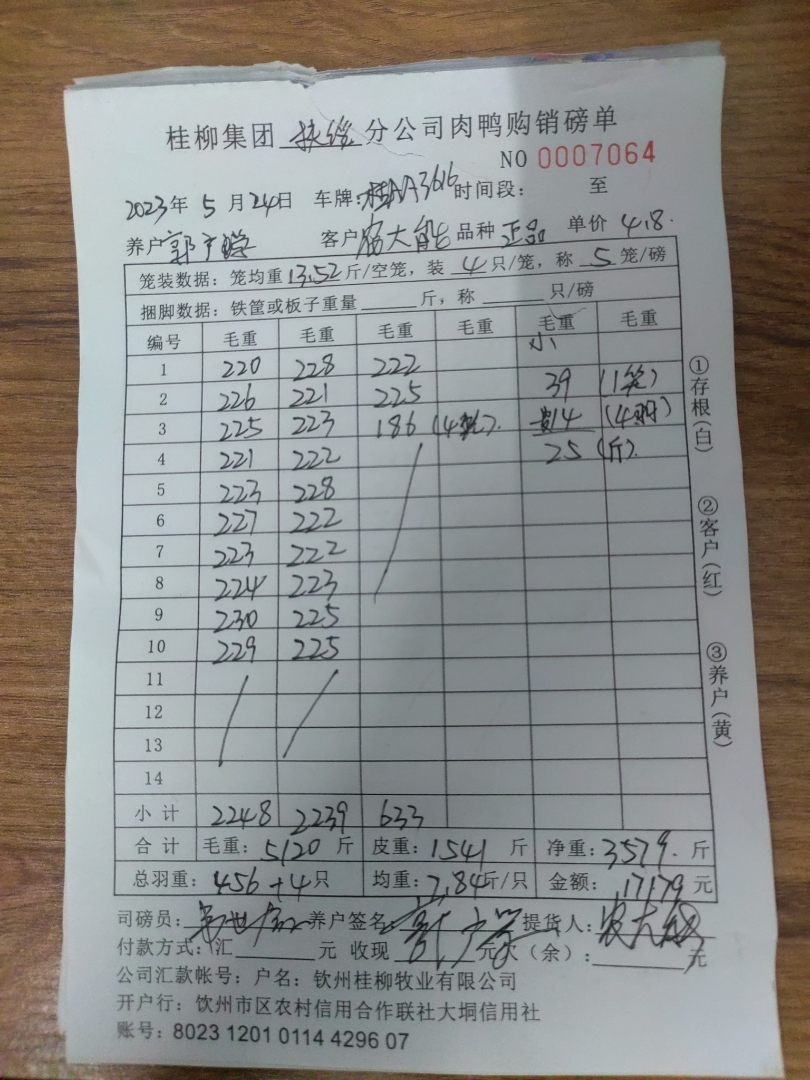 桂柳集团 扶绥 分公司肉鸭购销磅单
NO 0007064
2023年 5 月 24日 车牌:桂AA3616 时间段: 至
养户 郭 客户 农大能 品种 正品 单价 4.8.
笼装数据:笼均重 13.52 斤/空笼,装 4 只/笼,称 5 笼/磅
捆脚数据:铁筐或板子重量______斤,称______只/磅
编号 毛重 毛重 毛重 毛重 毛重 毛重
小
1 220 228 222
2 226 221 225 39 (1笼)
3 225 223 186 (4笼). 14 (4羽)
4 221 222 25 (斤).
5 223 228
6 227 222
7 223 222
8 224 223
9 230 225
10 229 225
11
12
13
14
小计 2248 2239 633
合计 毛重:5120 斤 皮重:1541 斤 净重:3579. 斤
总羽重:456+4只 均重:7.84斤/只 金额:17179 元
司磅员: 养户签名 提货人:农大能
付款方式:汇______元 收现______元欠(余):______元
公司汇款帐号:户名:钦州桂柳牧业有限公司
开户行:饮州市区农村信用合作联社大垌信用社
账号:8023 1201 0114 4296 07
①存根(白)
②客户(红)
③养户(黄)